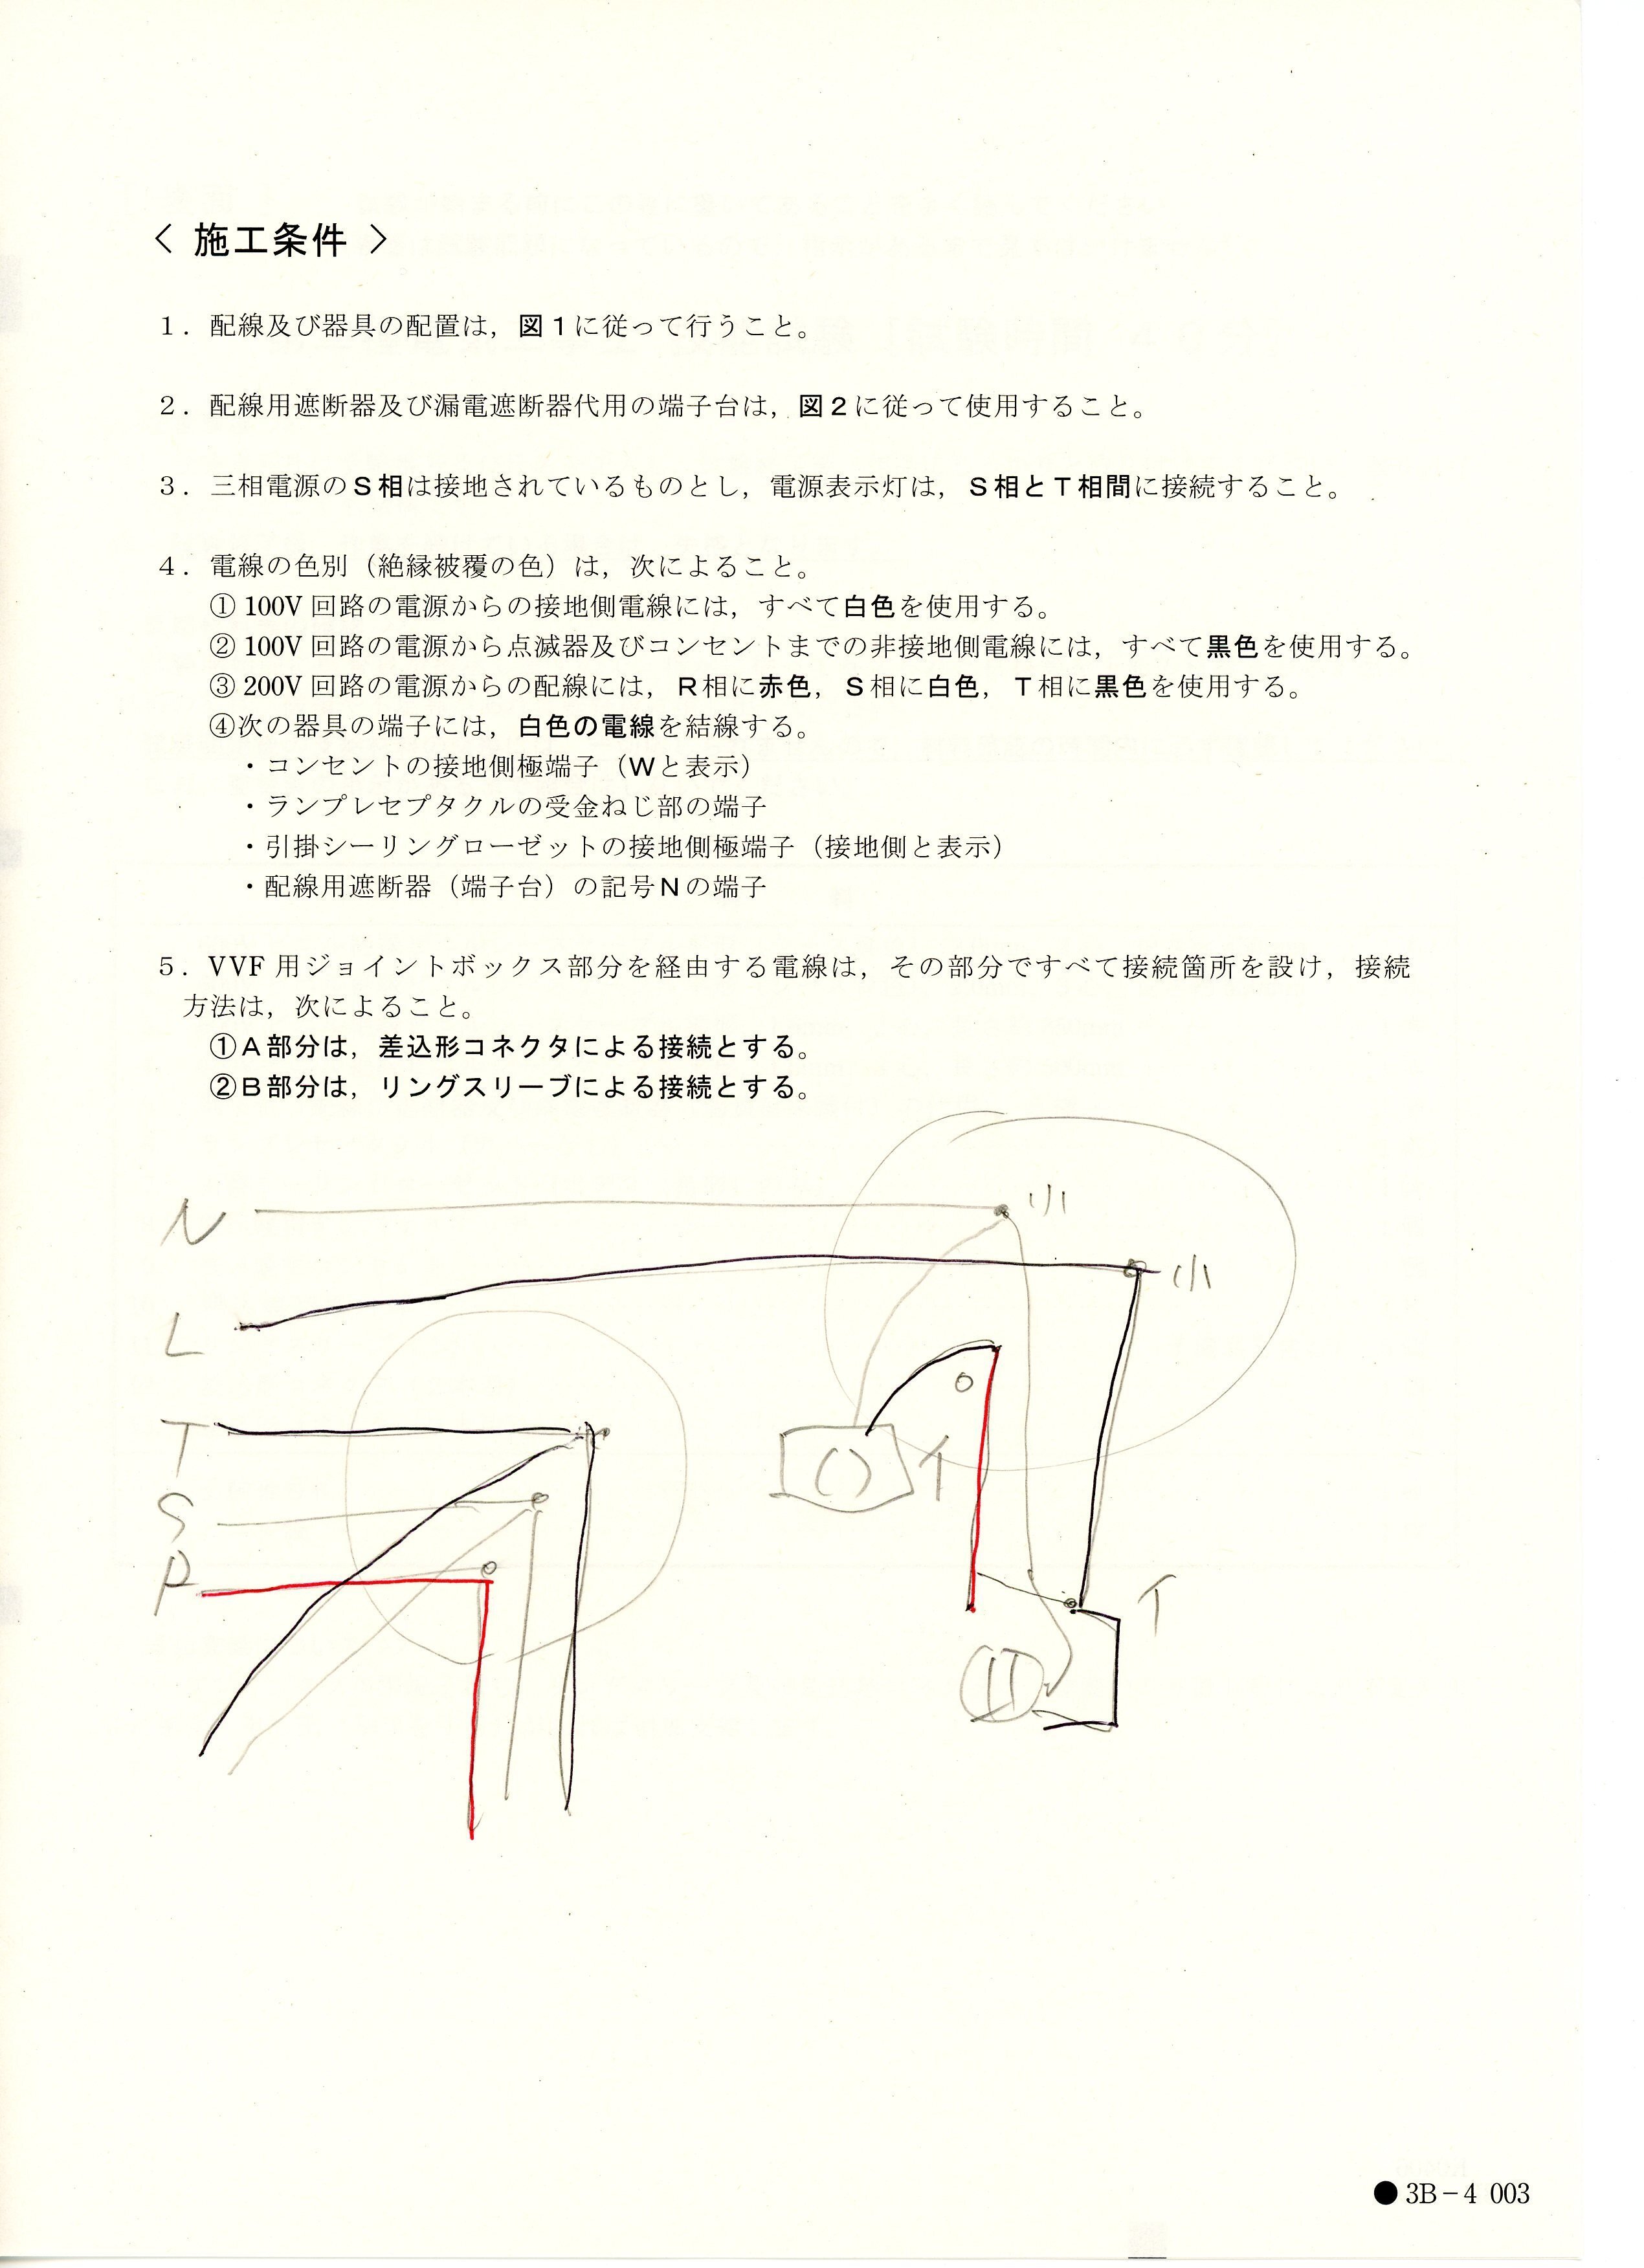 〈 施工条件 〉
１．配線及び器具の配置は，図１に従って行うこと。
２．配線用遮断器及び漏電遮断器代用の端子台は，図２に従って使用すること。
３．三相電源のＳ相は接地されているものとし，電源表示灯は，Ｓ相とＴ相間に接続すること。
４．電線の色別（絶縁被覆の色）は，次によること。
① 100V 回路の電源からの接地側電線には，すべて白色を使用する。
② 100V 回路の電源から点滅器及びコンセントまでの非接地側電線には，すべて黒色を使用する。
③ 200V 回路の電源からの配線には，Ｒ相に赤色，Ｓ相に白色，Ｔ相に黒色を使用する。
④次の器具の端子には，白色の電線を結線する。
・コンセントの接地側極端子（Ｗと表示）
・ランプレセプタクルの受金ねじ部の端子
・引掛シーリングローゼットの接地側極端子（接地側と表示）
・配線用遮断器（端子台）の記号Ｎの端子
５．VVF 用ジョイントボックス部分を経由する電線は，その部分ですべて接続箇所を設け，接続
方法は，次によること。
①Ａ部分は，差込形コネクタによる接続とする。
②Ｂ部分は，リングスリーブによる接続とする。
N
小
L
小
T
S
R
イ
イ
●3B－4 003